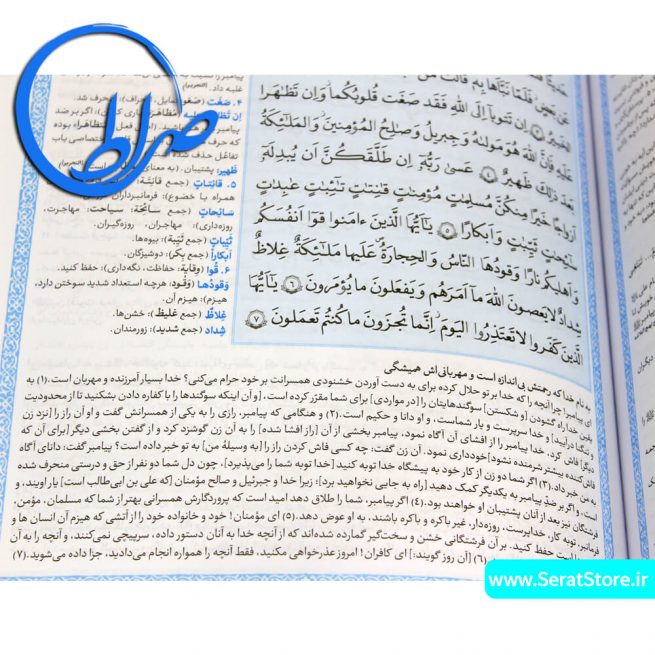 صراط
عَنّىٰ
اِن تَتوبآ اِلَى اللهِ فَقَد صَغَت قُلوبُكُما وَاِن تَظٰهَرا
عَلَيهِ فَاِنَّ اللهَ هُوَ مَولىٰهُ وَجِبريلُ وَصٰلِحُ المُؤمِنينَ وَالمَلٰٓئِكَةُ
بَعدَ ذٰلِكَ ظَهيرٌ ﴿٤﴾ عَسىٰ رَبُّهٓ اِن طَلَّقَكُنَّ اَن يُبدِلَهٓ
اَزواجًا خَيرًا مِنكُنَّ مُسلِمٰتٍ مُؤمِنٰتٍ قٰنِتٰتٍ تٰٓئِبٰتٍ عٰبِدٰتٍ
سٰٓئِحٰتٍ ثَيِّبٰتٍ وَاَبكارًا ﴿٥﴾ يٰٓاَيُّهَا الَّذينَ ءامَنوا قوٓا اَنفُسَكُم
وَاَهليكُم نارًا وَقودُهَا النّاسُ وَالحِجارَةُ عَلَيها مَلٰٓئِكَةٌ غِلاظٌ
شِدادٌ لا يَعصونَ اللهَ مآ اَمَرَهُم وَيَفعَلونَ ما يُؤمَرونَ ﴿٦﴾ يٰٓاَيُّهَا
الَّذينَ كَفَروا لا تَعتَذِرُوا اليَومَ اِنَّما تُجزَونَ ما كُنتُم تَعمَلونَ ﴿٧﴾
غلبه داد.
۴. صَغَت
منحرف شد.
ظَهیر: پشتیبان.
۵. قانِتات (جمع قانِتَة):
همراه با خضوع): فرمانبرداران
سائِحات (جمع سائِحَة، سیاحت: مهاجرت،
روزه‌داری): مهاجران، روزه‌گیران.
ثَیِّبات (جمع ثَیِّبَة): بیوه‌ها.
اَبکاراً (جمع بِکر): دوشیزگان.
۶. قُوا (وقایة: حفاظت، نگه‌داری): حفظ کنید.
وَقودُها (وَقود: هرچه استعداد شدید سوختن دارد،
هیزم): هیزم آن.
غِلاظ (جمع غلیظ): خشن‌ها.
شِداد (جمع شدید): زورمندان.
به نام خدا که رحمتش بی‌اندازه است و مهربانی‌اش همیشگی
ای پیامبر! چرا آنچه را که خدا بر تو حلال کرده برای به دست آوردن خشنودی همسرانت بر خود حرام می‌کنی؟ خدا بسیار آمرزنده و مهربان است. (۱) به
یقین خدا راه گشودن [و شکستن] سوگندهایتان را [در مواردی] برای شما مقرّر کرده است، [و آن اینکه سوگندها را با کفاره دادن بشکنید تا از محدودیت
و تنگنا درآیید] و خدا سرپرست و یار شماست، و او دانا و حکیم است. (۲) و هنگامی که پیامبر، رازی را به یکی از همسرانش گفت و او آن راز را [نزد زن
دیگر] فاش کرد، خدا پیامبر را از افشای آن آگاه نمود، پیامبر بخشی از آن [راز افشا شده] را به آن زن گوشزد کرد و از گفتن بخشی دیگر [برای آن که
فاش کننده بیشتر شرمنده نشود] خودداری نمود. آن زن گفت: چه کسی فاش کردن راز را [به وسیلهٔ من] به تو خبر داده است؟ پیامبر گفت: دانای آگاه
به من خبر داد. (۳) اگر شما دو زن از کار خود به پیشگاه خدا توبه کنید [خدا توبه شما را می‌پذیرد]، چون دل شما دو نفر از حق و درستی منحرف شده
است، و اگر بر ضدّ پیامبر به یکدیگر کمک دهید [راه به جایی نخواهید برد]؛ زیرا خدا و جبرئیل و صالح مؤمنان [که علی بن ابی‌طالب است] یار اویند، و
فرشتگان نیز بعد از آنان پشتیبان او خواهند بود. (۴) اگر پیامبر، شما را طلاق دهد امید است که پروردگارش همسرانی بهتر از شما که مسلمان، مؤمن،
فرمانبر، توبه کار، خداپرست، روزه‌دار، غیر باکره و باکره باشند، به او عوض دهد. (۵) ای مؤمنان! خود و خانواده خود را از آتشی که هیزم آن انسان ها و
است حفظ کنید. بر آن فرشتگانی خشن و سخت‌گیر گمارده شده‌اند که از آنچه خدا به آنان دستور داده، سرپیچی نمی‌کنند، و آنچه را به آن
(۶) [آن روز گویند:] ای کافران! امروز عذرخواهی مکنید، فقط آنچه را همواره انجام می‌دادید، جزا داده می‌شوید. (۷)
www.SeratStore.ir